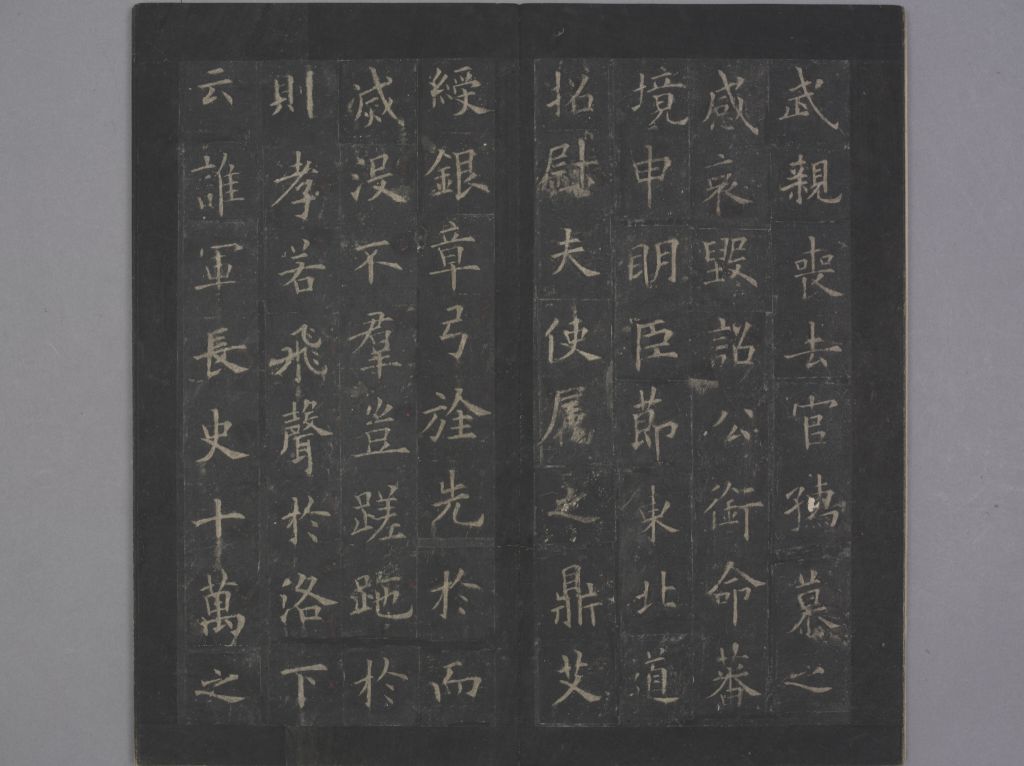 武親喪去官孺慕之
感哀毀詔公銜命蕃
境申明臣節東北道
拓尉夫使屬之鼎艾
綬銀章弓旌先於而
滅沒不羣豈蹉跎於
則孝若飛聲於洛下
云誰軍長史十萬之